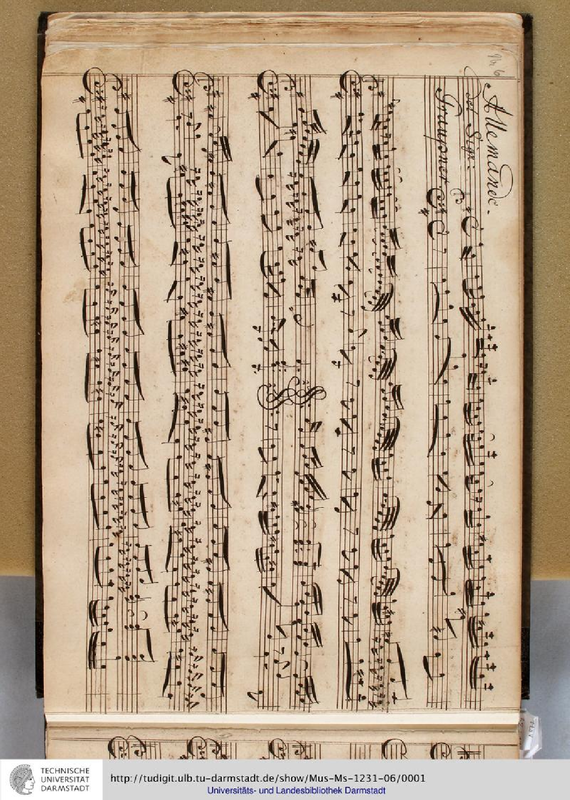 Allemande.
del Sigr.
Graupner
TECHNISCHE
UNIVERSITÄT
DARMSTADT
http://tudigit.ulb.tu-darmstadt.de/show/Mus-Ms-1231-06/0001
Universitäts- und Landesbibliothek Darmstadt